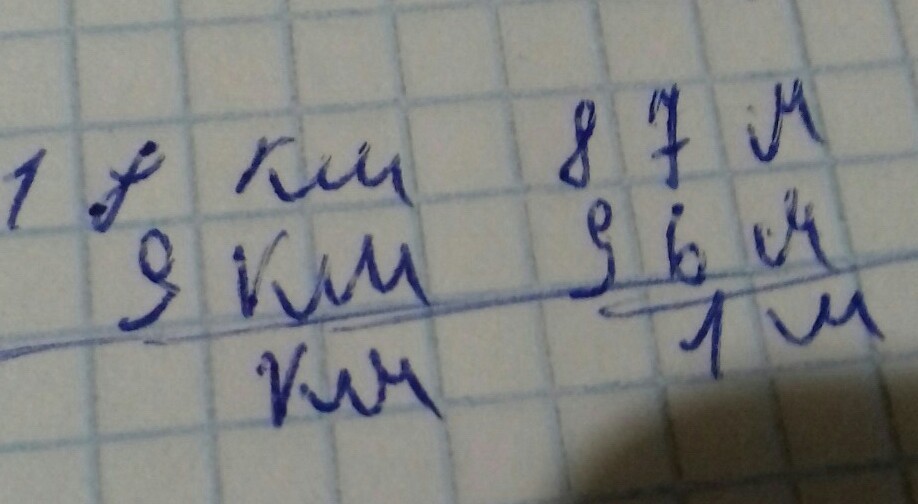 18 км 87 м
9 км 96 м
км 1 м